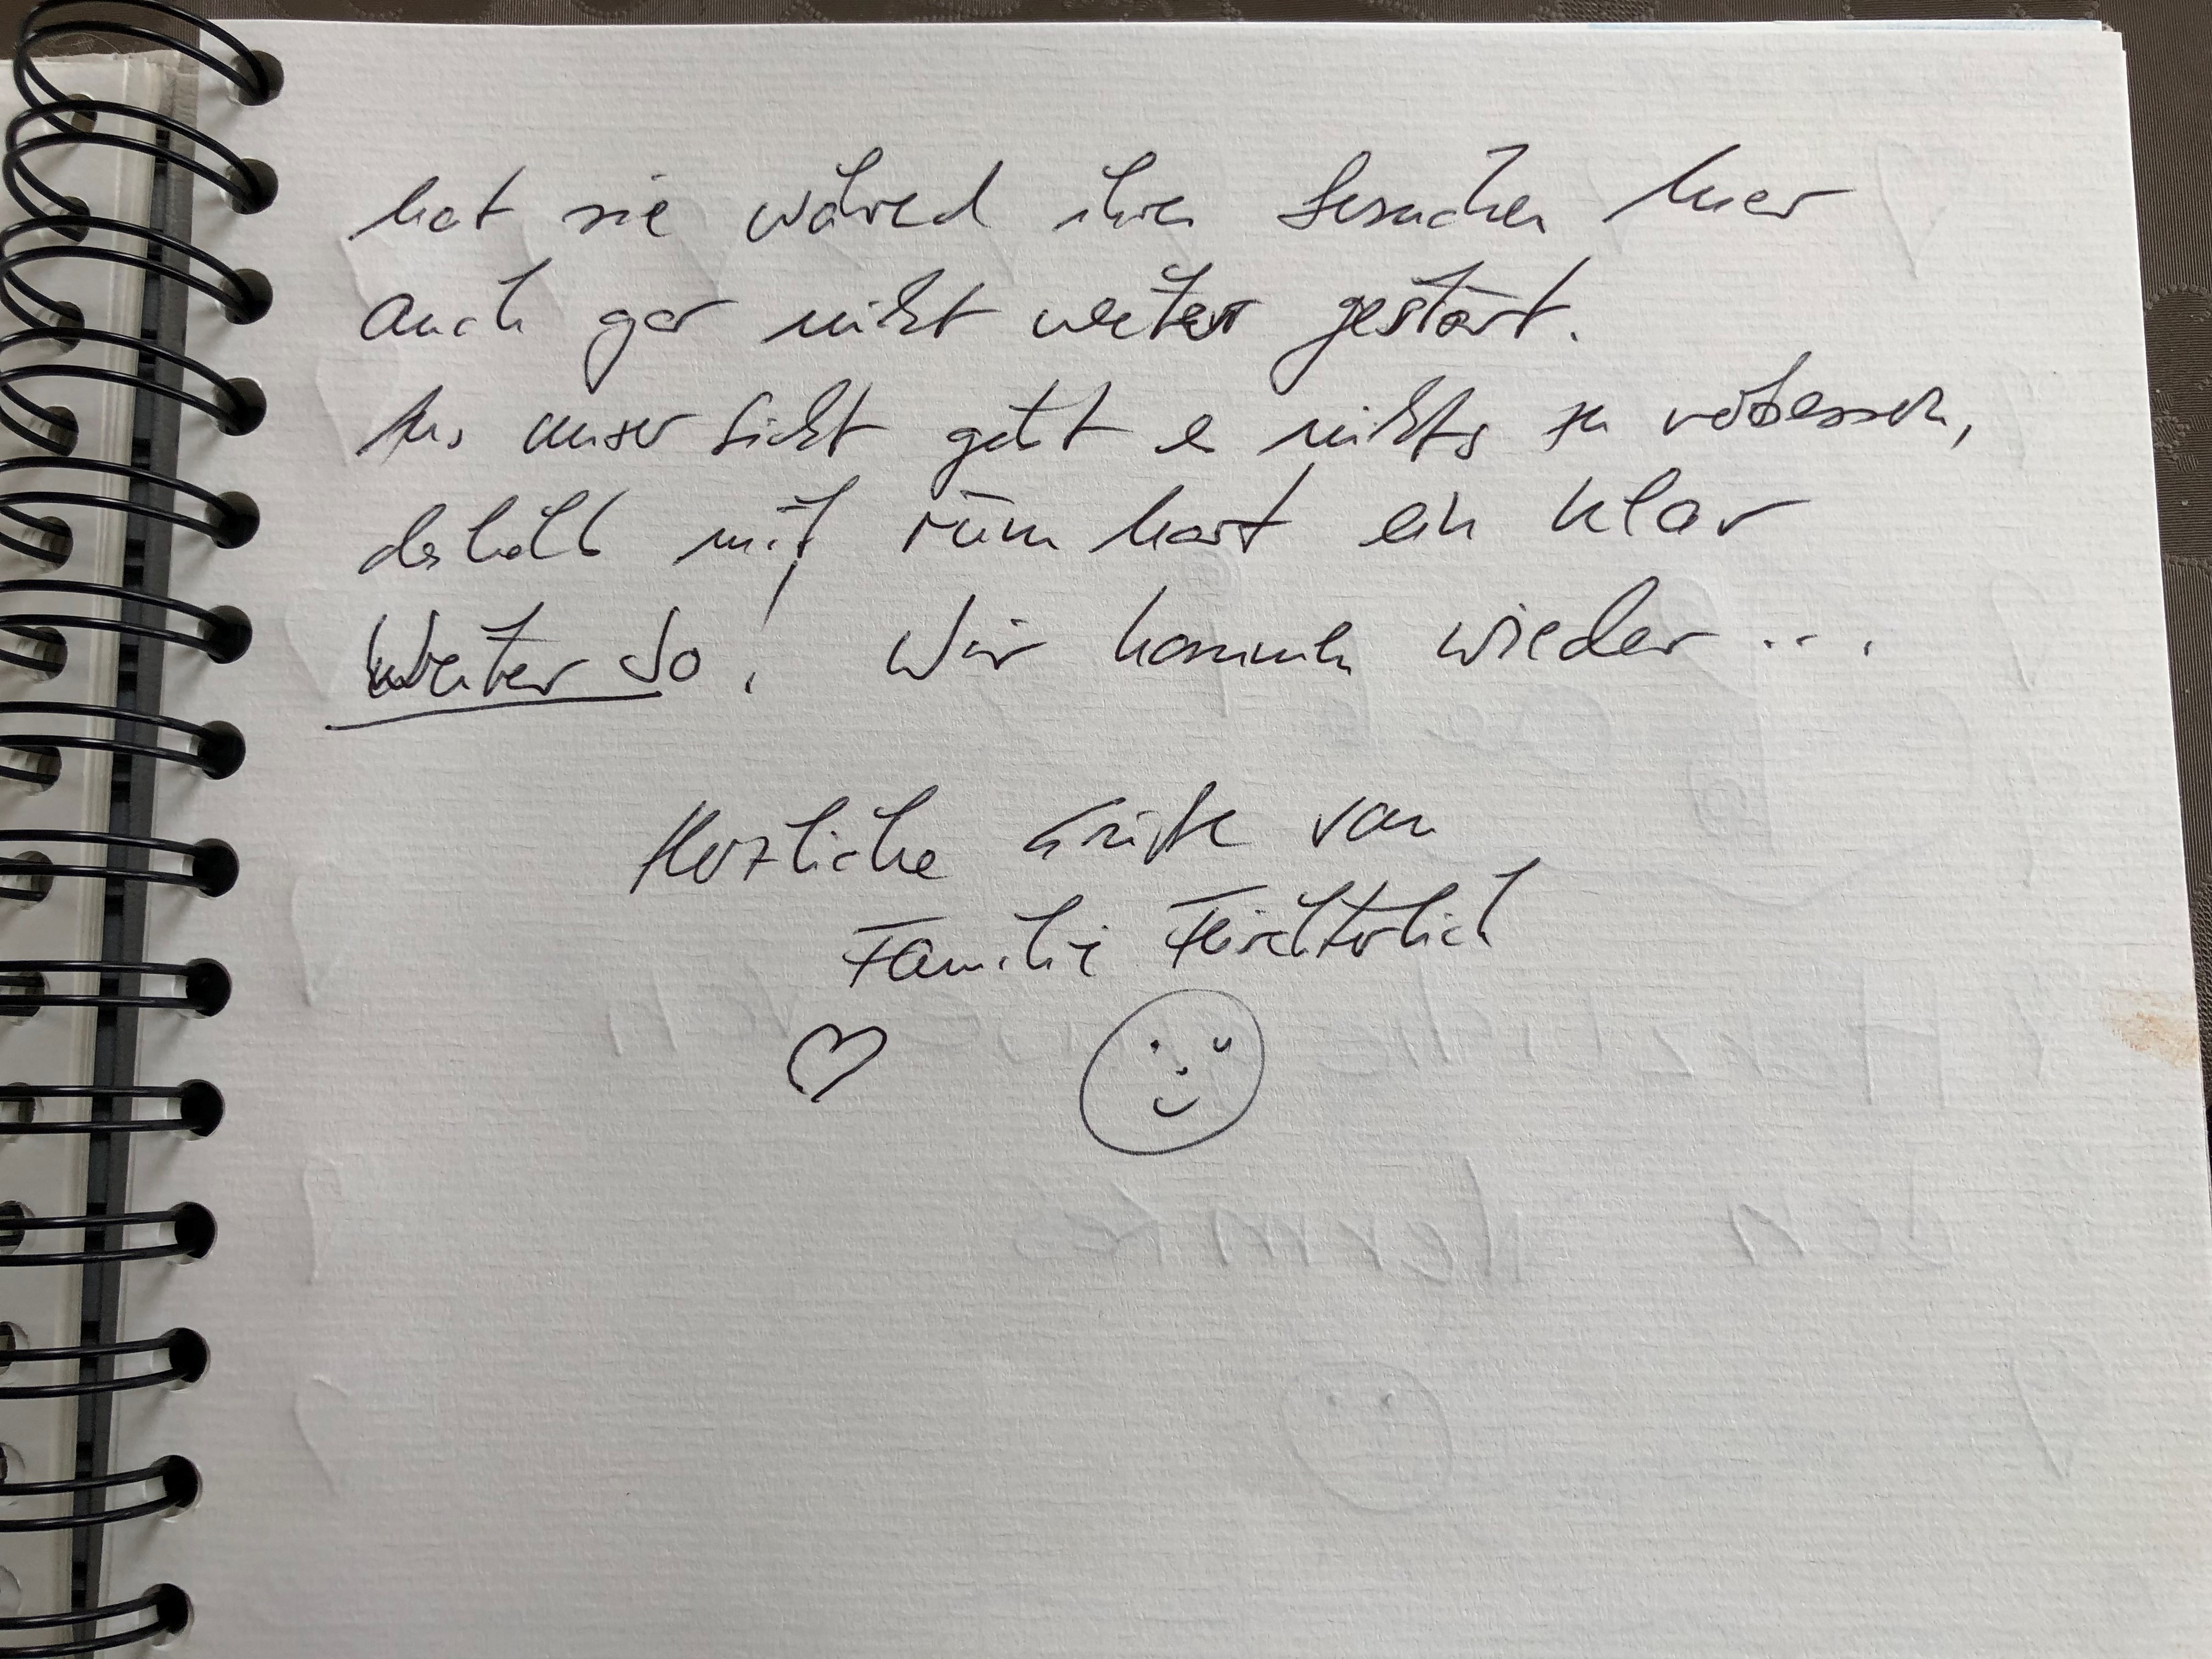 hat sie während ihren Besuchen hier
auch gar nicht weiter gestört.
Aus unser Sicht gibt es nichts zu verbessern,
deshalb mit rüm hart ein klar
Weiter so! Wir kommen wieder...
Herzliche Grüße von
Familie